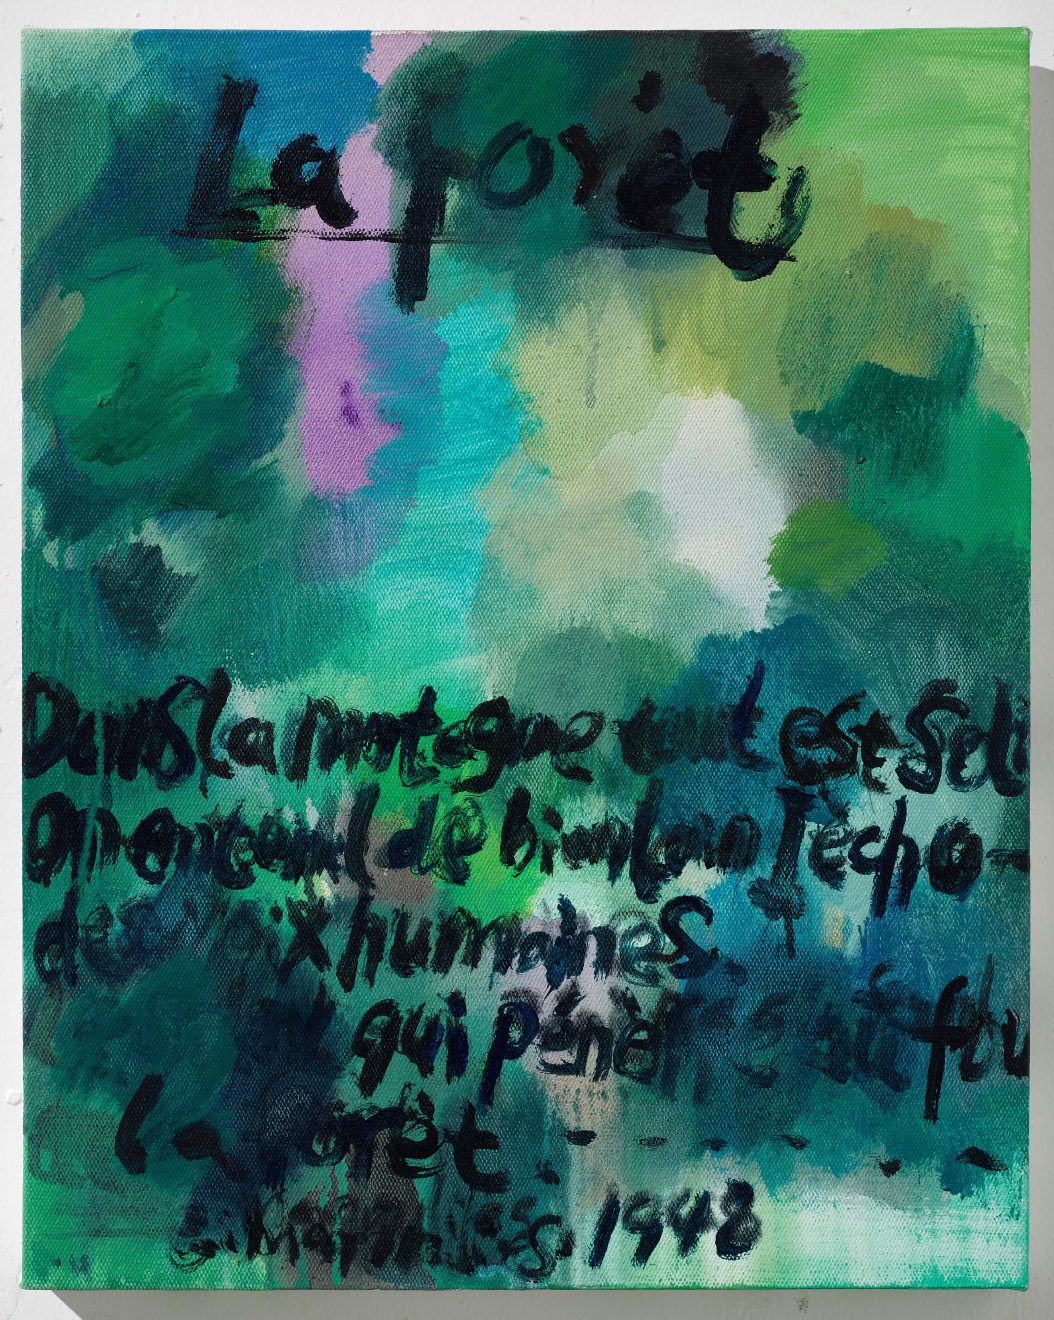 La forêt
Dans la montagne tout est Soli
On entend de bien loin l'écho-
des voix humaines
qui pénè
la forêt - - - - - -
1948